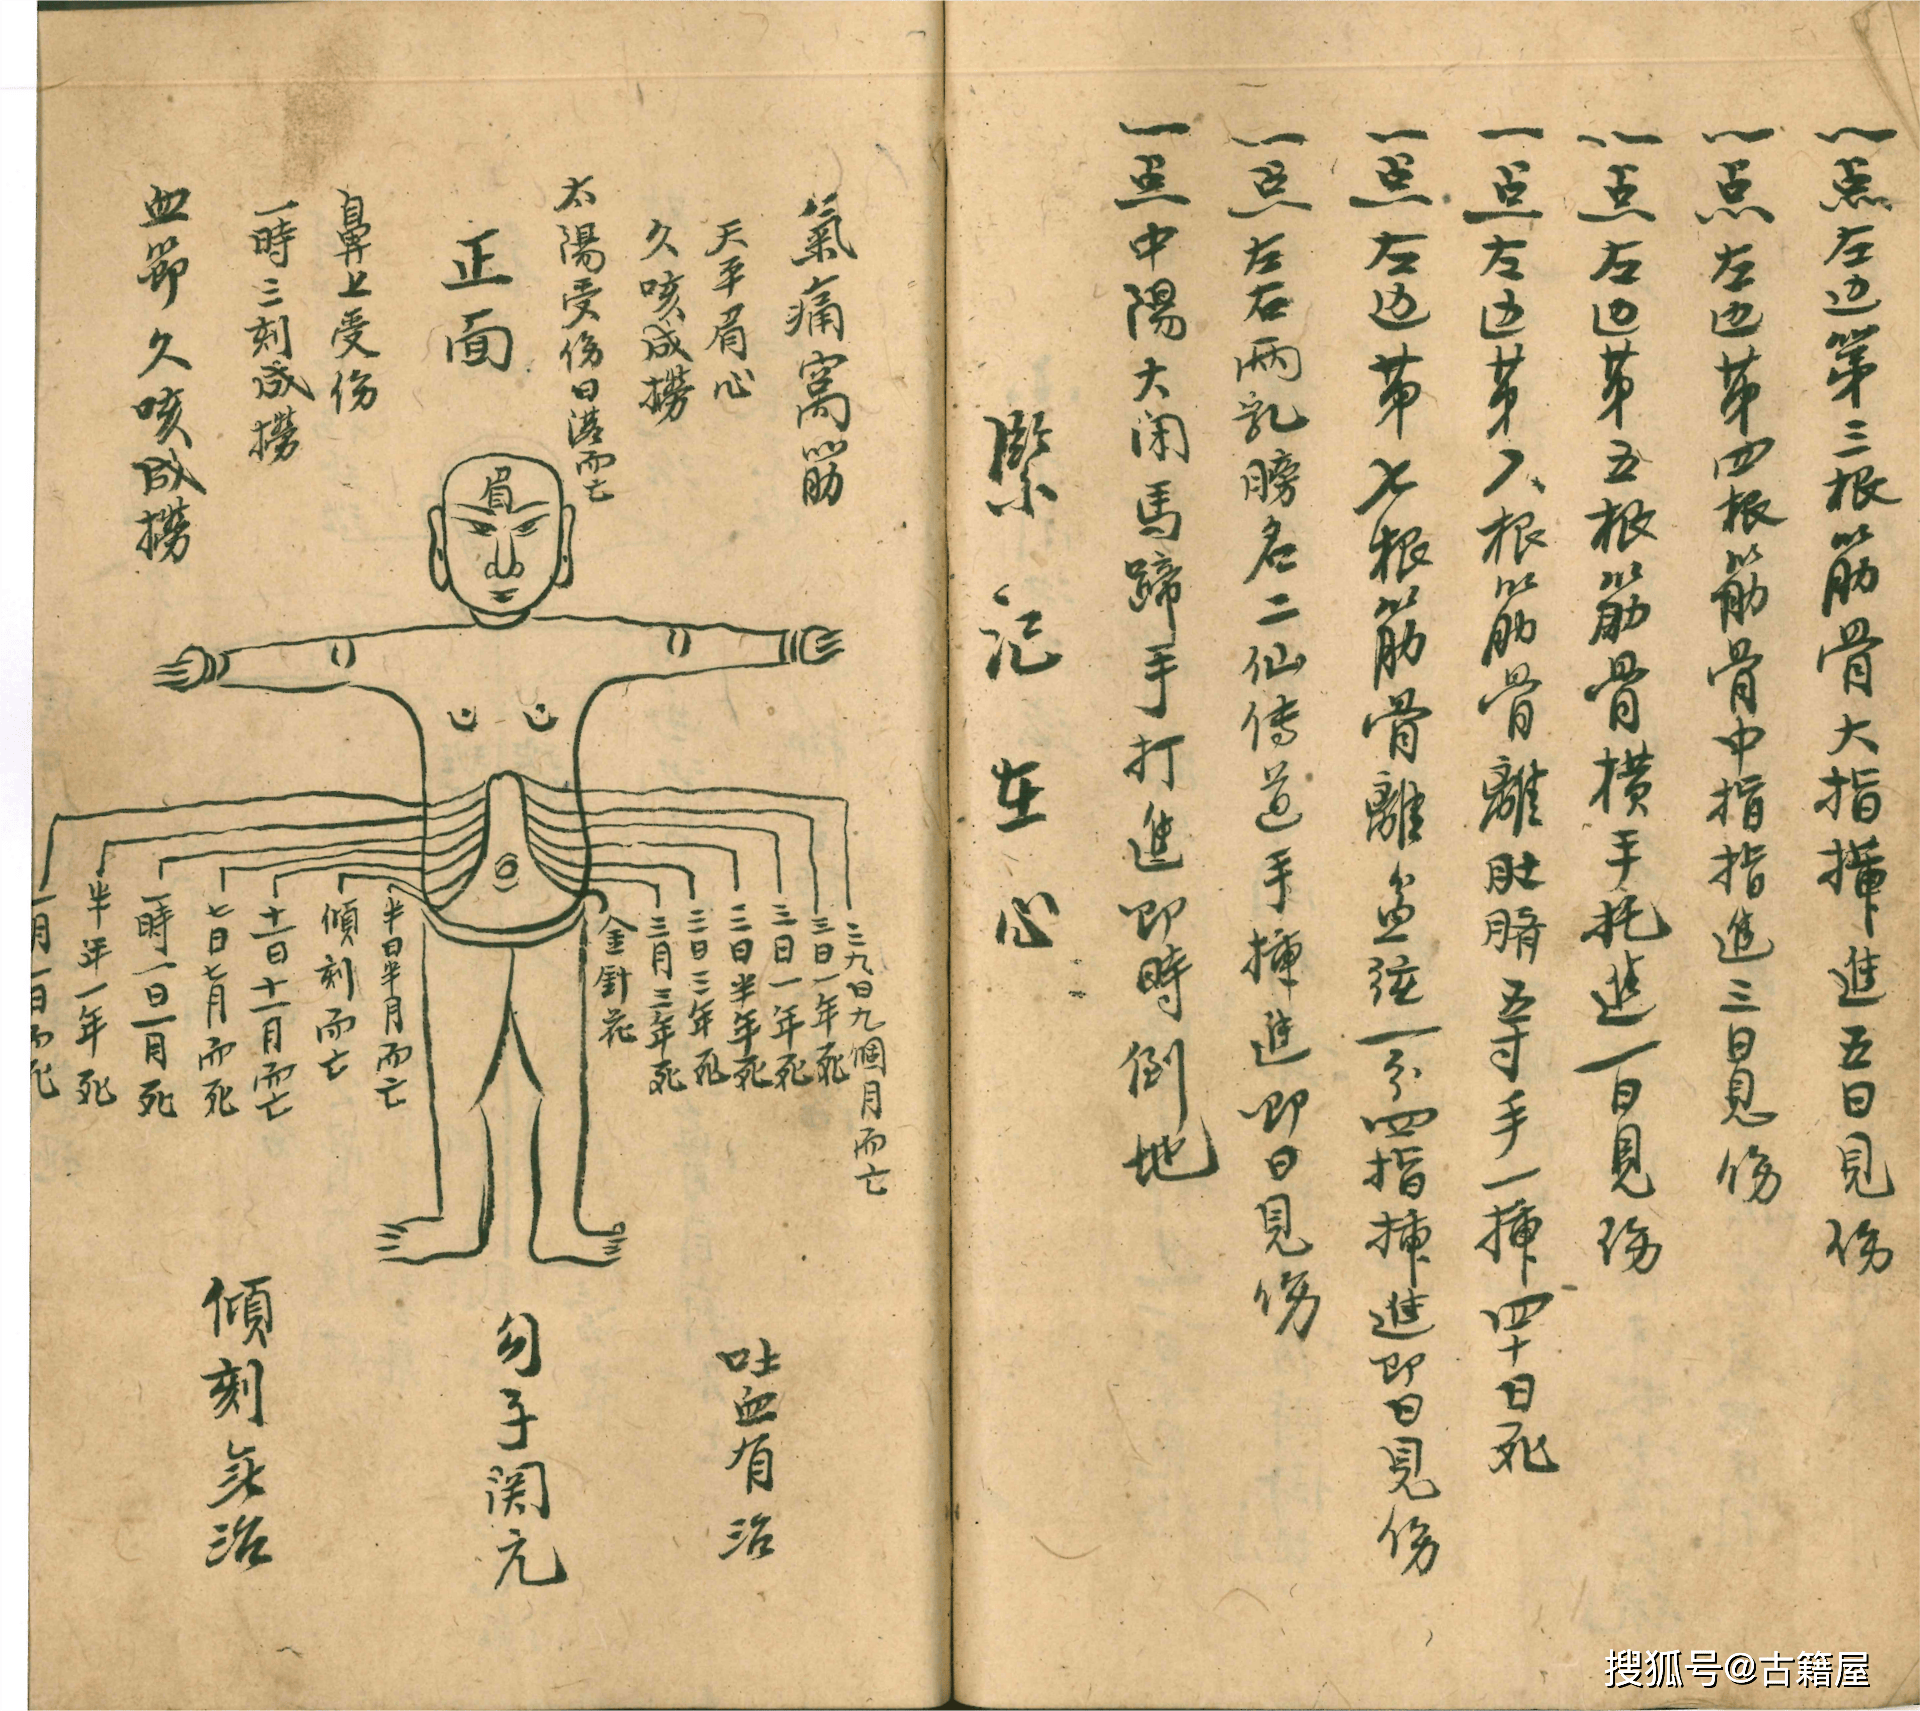 一点左边第三根筋骨大指揷進五日見伤
一点左边苐四根筋骨中指指進三日見伤
一点右边苐五根筋骨横手托進一百見伤
一点左边苐八根筋骨離肚脐五寸手一揷四十日死
一点左边苐七根筋骨離盆弦一分四指揷進即日見伤
一点左右两乳膀名二仙传道手揷進即日見伤
一点中陽大闹馬蹄手打進即時倒地
緊记在心
氣痛窩筋
天平眉心
久咳成撈
太陽受伤日落而亡
正面
鼻上受伤
一時三刻成撈
血節久咳成撈
眉
九日九個月而亡
三日一年死
三日一年死
二日半年死
二日三年死
三月三年死
金針花
半日半月而亡
傾刻而亡
十一日十一月而亡
七日七月而死
一時一日一月死
半年一年死
一月一日而死
吐血有治
勾子関元
傾刻无治
搜狐号@古籍屋